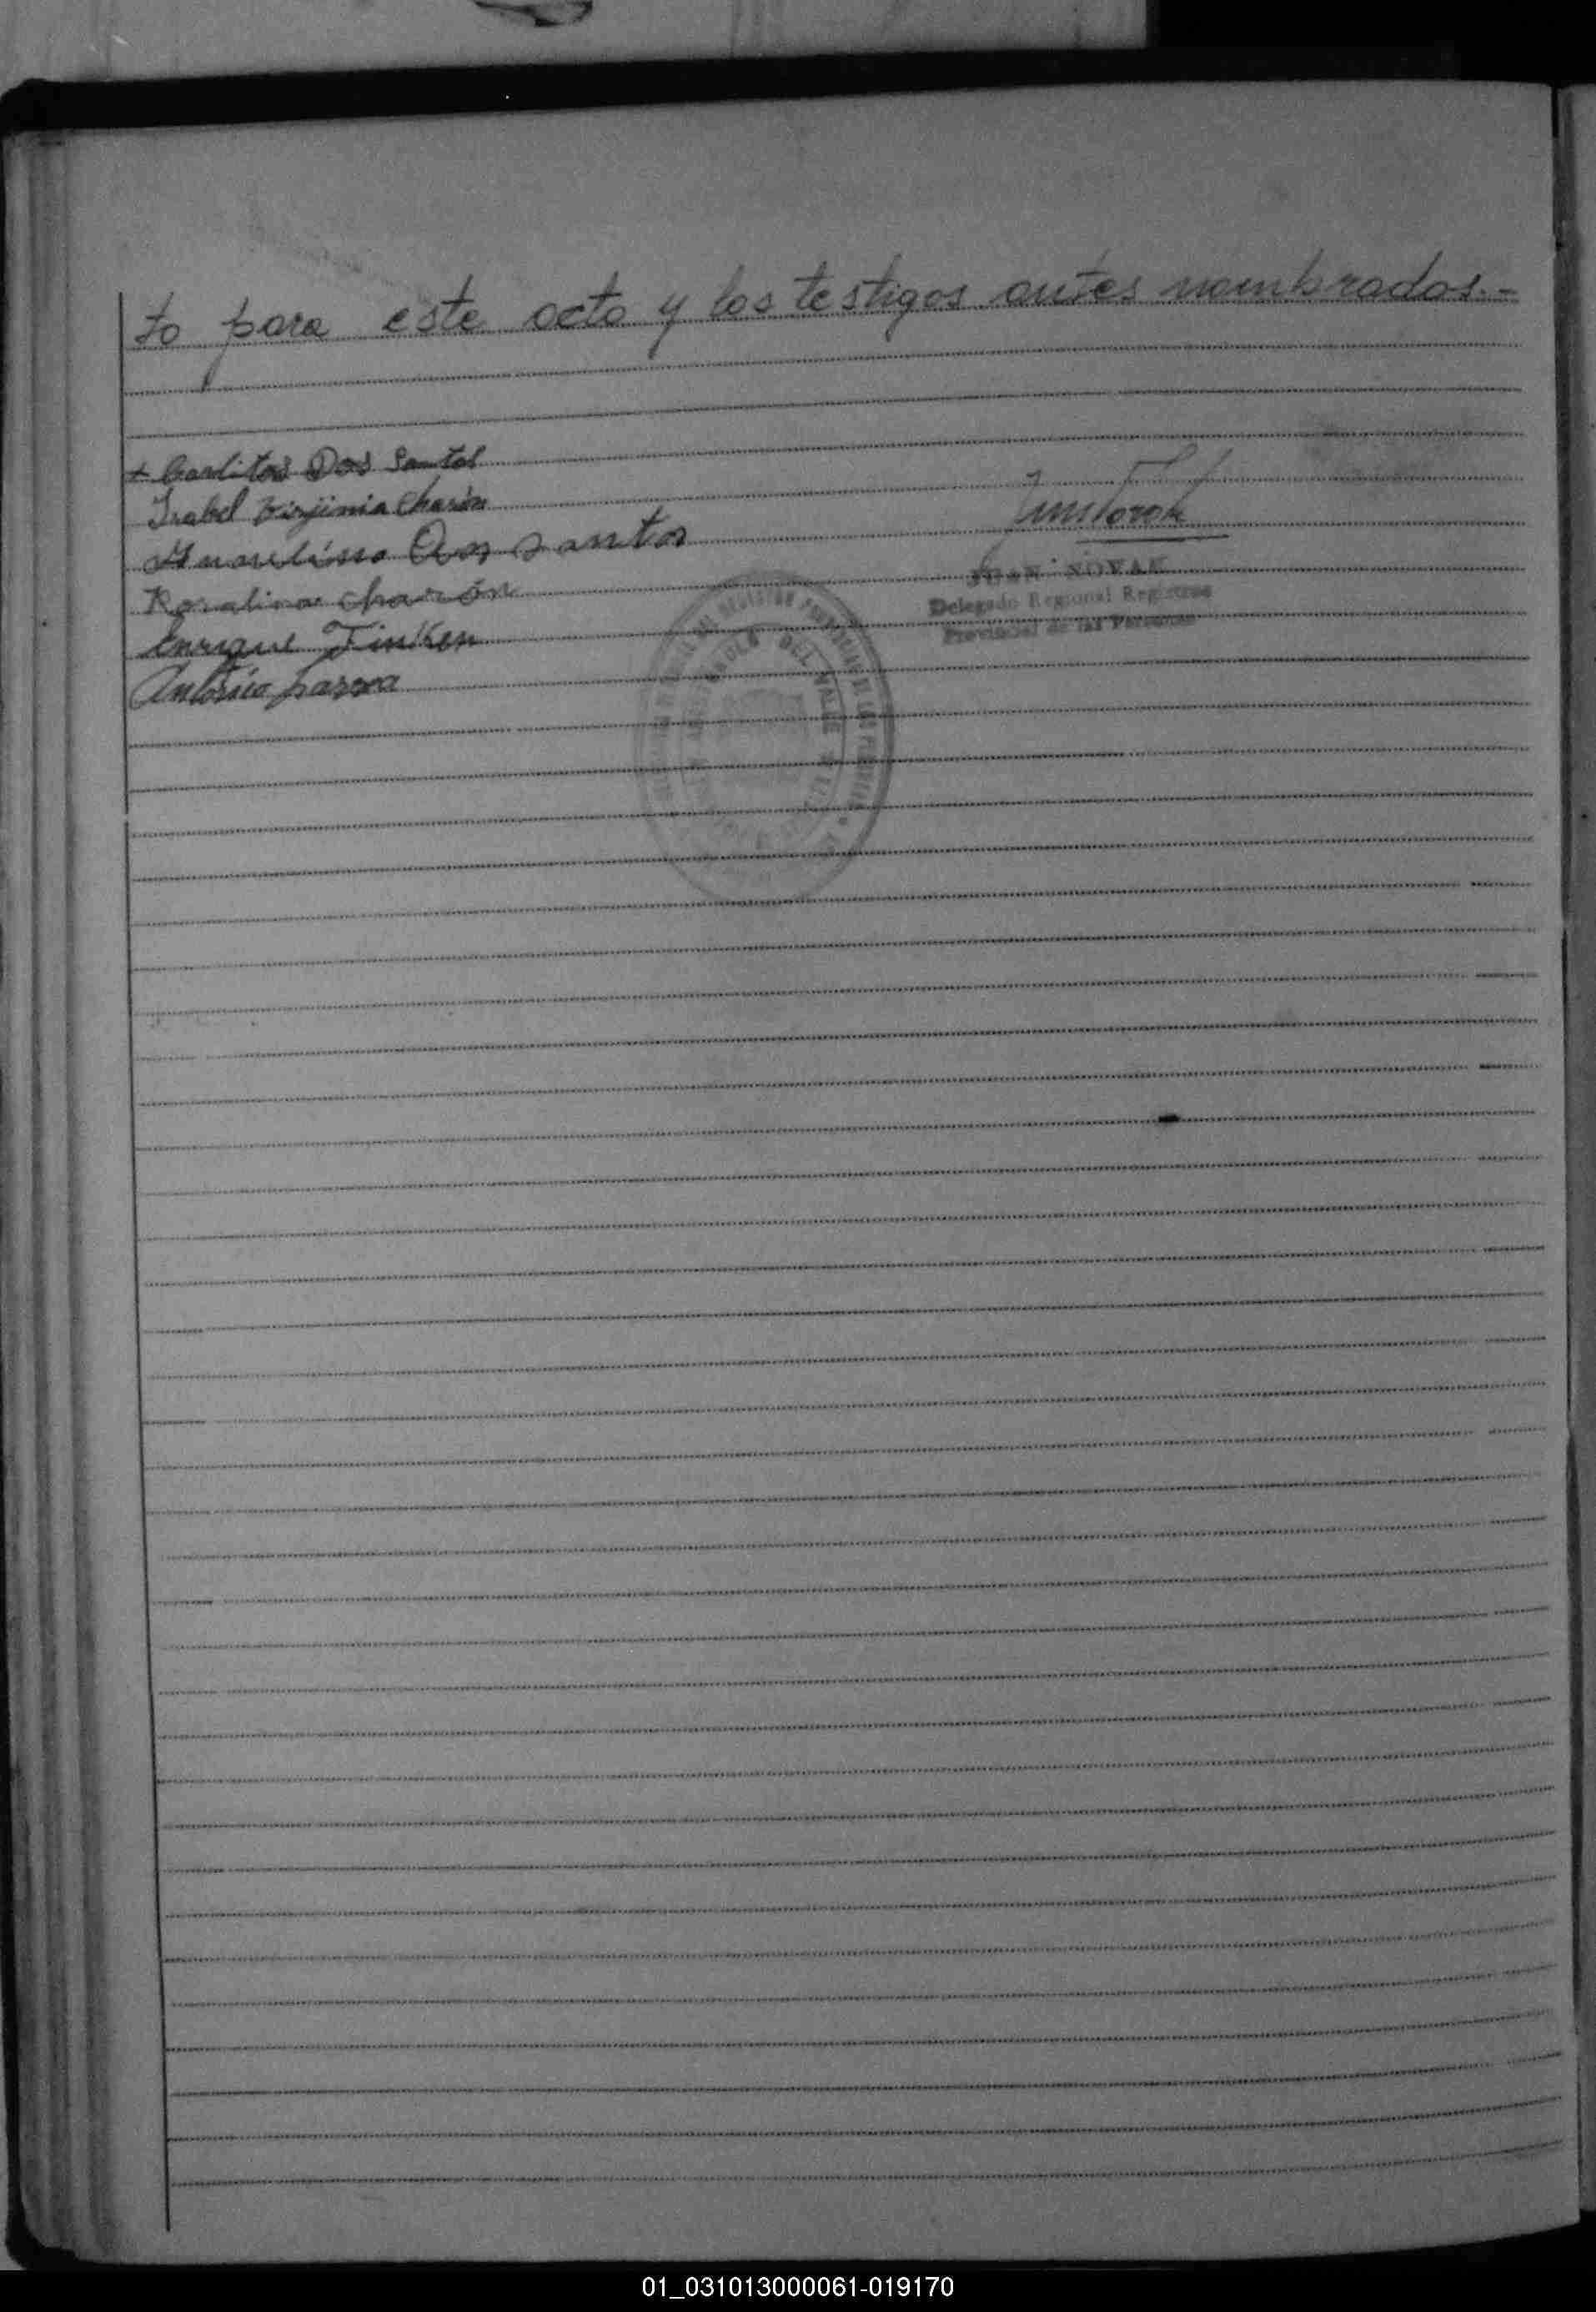 to para este acto y los testigos antes nombrados.-
+ Carlitos Dos Santos
Isabel Virjinia Charón
Dos santos
Rosalina Charón
Enrique Finken
Antonio parra
JUAN NOVAK
Delegado Regional Registros
Provincial de las Personas
DEL VALLE
01_031013000061-019170